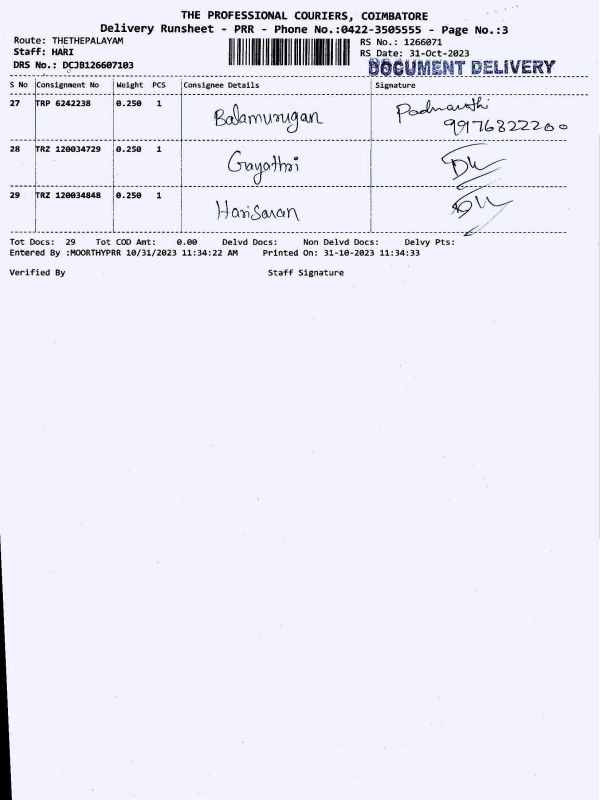 THE PROFESSIONAL COURIERS, COIMBATORE
Delivery Runsheet - PRR - Phone No.:0422-3505555 - Page No.:3
Route: THETHEPALAYAM
RS No.: 1266071
Staff: HARI
RS Date: 31-Oct-2023
DRS No.: DCJB126607103
DOCUMENT DELIVERY
S No Consignment No Weight PCS Consignee Details Signature
27 TRP 6242238 0.250 1 Balamurugan
28 TRZ 120034729 0.250 1 Gayathri
29 TRZ 120034848 0.250 1 Harisaran
Tot Docs: 29 Tot COD Amt: 0.00 Delvd Docs: Non Delvd Docs: Delvy Pts:
Entered By :MOORTHYPRR 10/31/2023 11:34:22 AM Printed On: 31-10-2023 11:34:33
Verified By Staff Signature